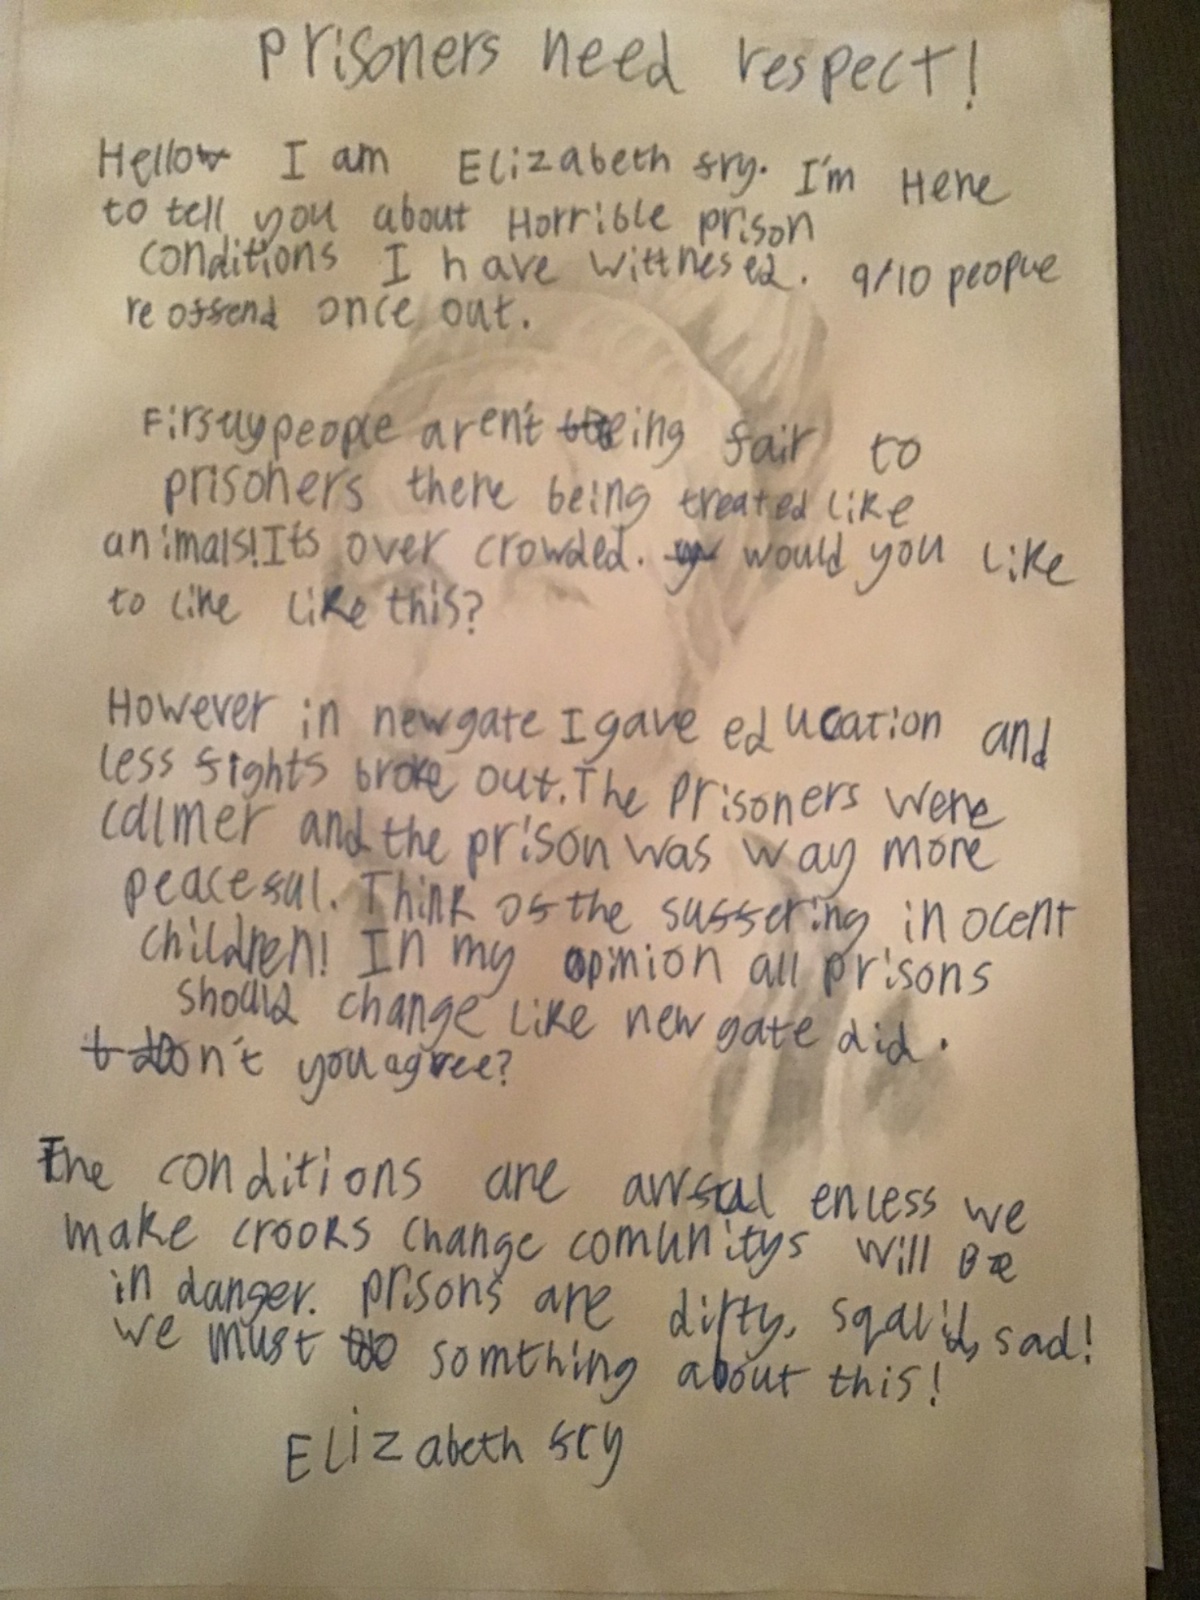 prisoners need respect!
Hello I am Elizabeth fry. I'm Here
to tell you about Horrible prison
conditions I have wittnesed. 9/10 people
re offend once out.
Firstly people aren't being fair to
prisoners there being treated like
animals! It's over crowded. would you like
to live like this?
However in newgate I gave education and
less fights broke out. The prisoners were
calmer and the prison was way more
peaceful. Think of the suffering in ocent
children! In my opinion all prisons
should change like new gate did.
don't you agree?
The conditions are awful enless we
make crooks change comunitys will Be
in danger. prisons are dirty, sqalid, sad!
we must do somthing about this!
Elizabeth fry